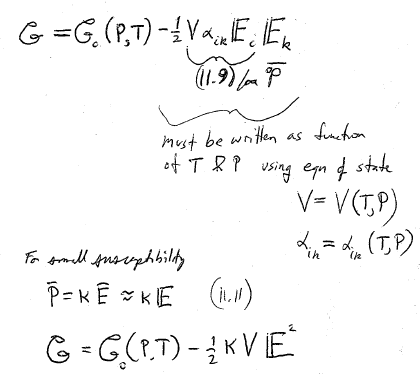 G = G₀(P,T) - ½ V α_ik E_i E_k
(11.9) for P̄
must be written as function
of T & P using eqn of state
V = V(T,P)
α_ik = α_ik (T,P)
For small susceptibility
P̄ = κ Ē ≈ κ E (11.11)
G = G₀(P,T) - ½ κ V E²